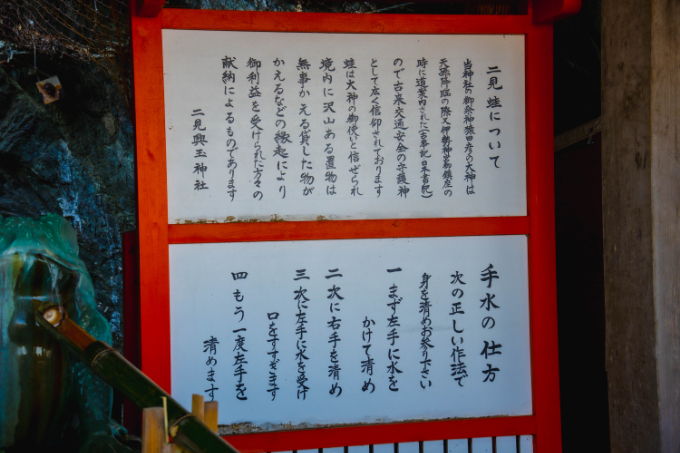 二見蛙について
当神社の御祭神猿田彦の大神は
天孫降臨の際又伊勢神宮御鎮座の
時に道案内された(古事記日本書紀)
ので古来交通安全の守護神
として広く信仰されております
蛙は大神の御使いと信ぜられ
境内に沢山ある置物は
無事かえる貸した物が
かえるなどの縁起により
御利益を受けられた方々の
献納によるものであります
二見興玉神社
手水の仕方
次の正しい作法で
身を清めお参り下さい
一 まず左手に水を
かけて清め
二 次に右手を清め
三 次に左手に水を受け
口をすすぎます
四 もう一度左手を
清めます